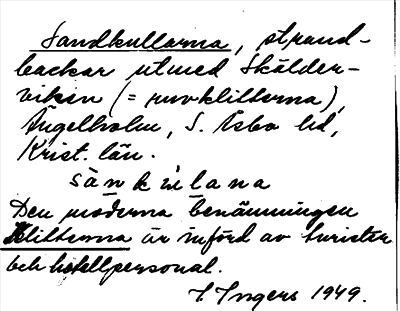 Sandkullarna, strand-
backar utmed Skälder-
viken (= nuv klitterna),
Ängelholm, S. Åsbo hd,
Krist. län.
Den moderna benämningen
Klitterna är införd av turister
och hotellpersonal.
I. Ingers 1949.